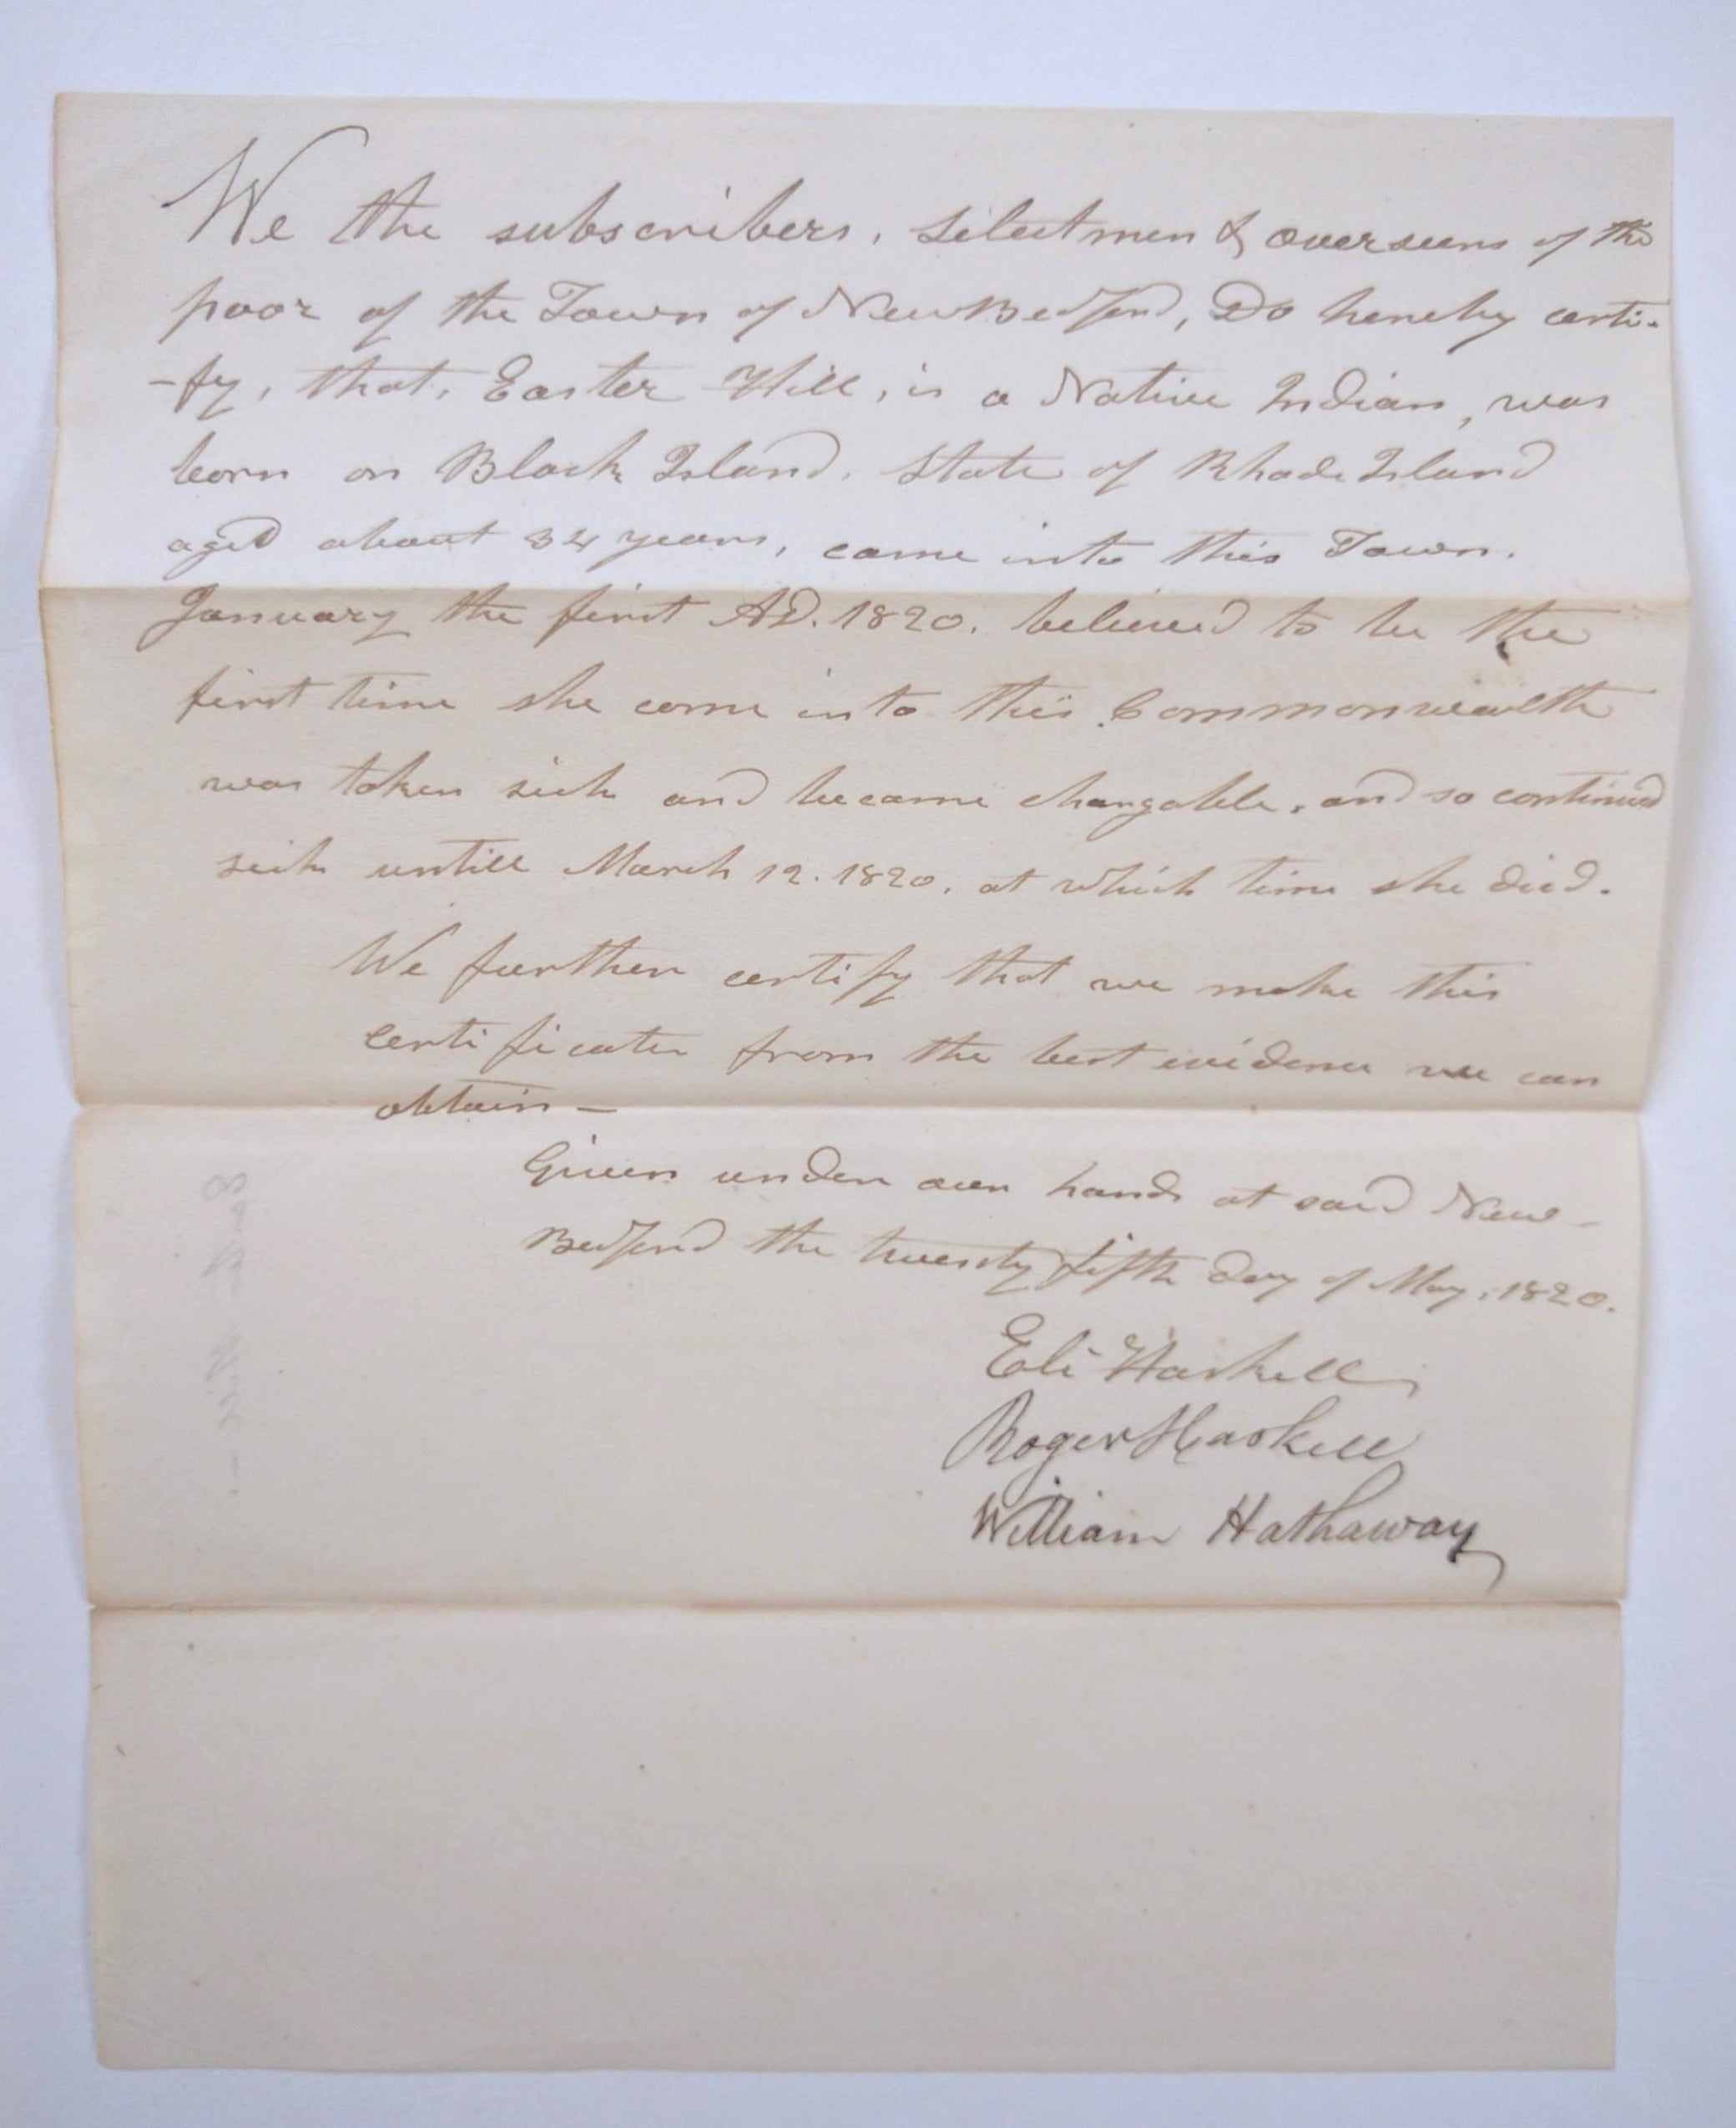 We the subscribers, Selectmen & overseers of the
poor of the Town of New Bedford, Do hereby certi-
-fy, that, Easter Hill, is a Native Indian, was
born on Block Island, State of Rhode Island
aged about 34 years, came into this Town.
January the first AD. 1820. believed to be the
first time she come into this Commonwealth
was taken sick and became chargable, and so continued
sick untill March 12. 1820. at which time she died.
We further certify that we make this
certificate from the best evidence we can
obtain —
Given under our hands at said New-
Bedford the twenty fifth day of May, 1820.
Eli Haskell
Roger Haskell
William Hathaway